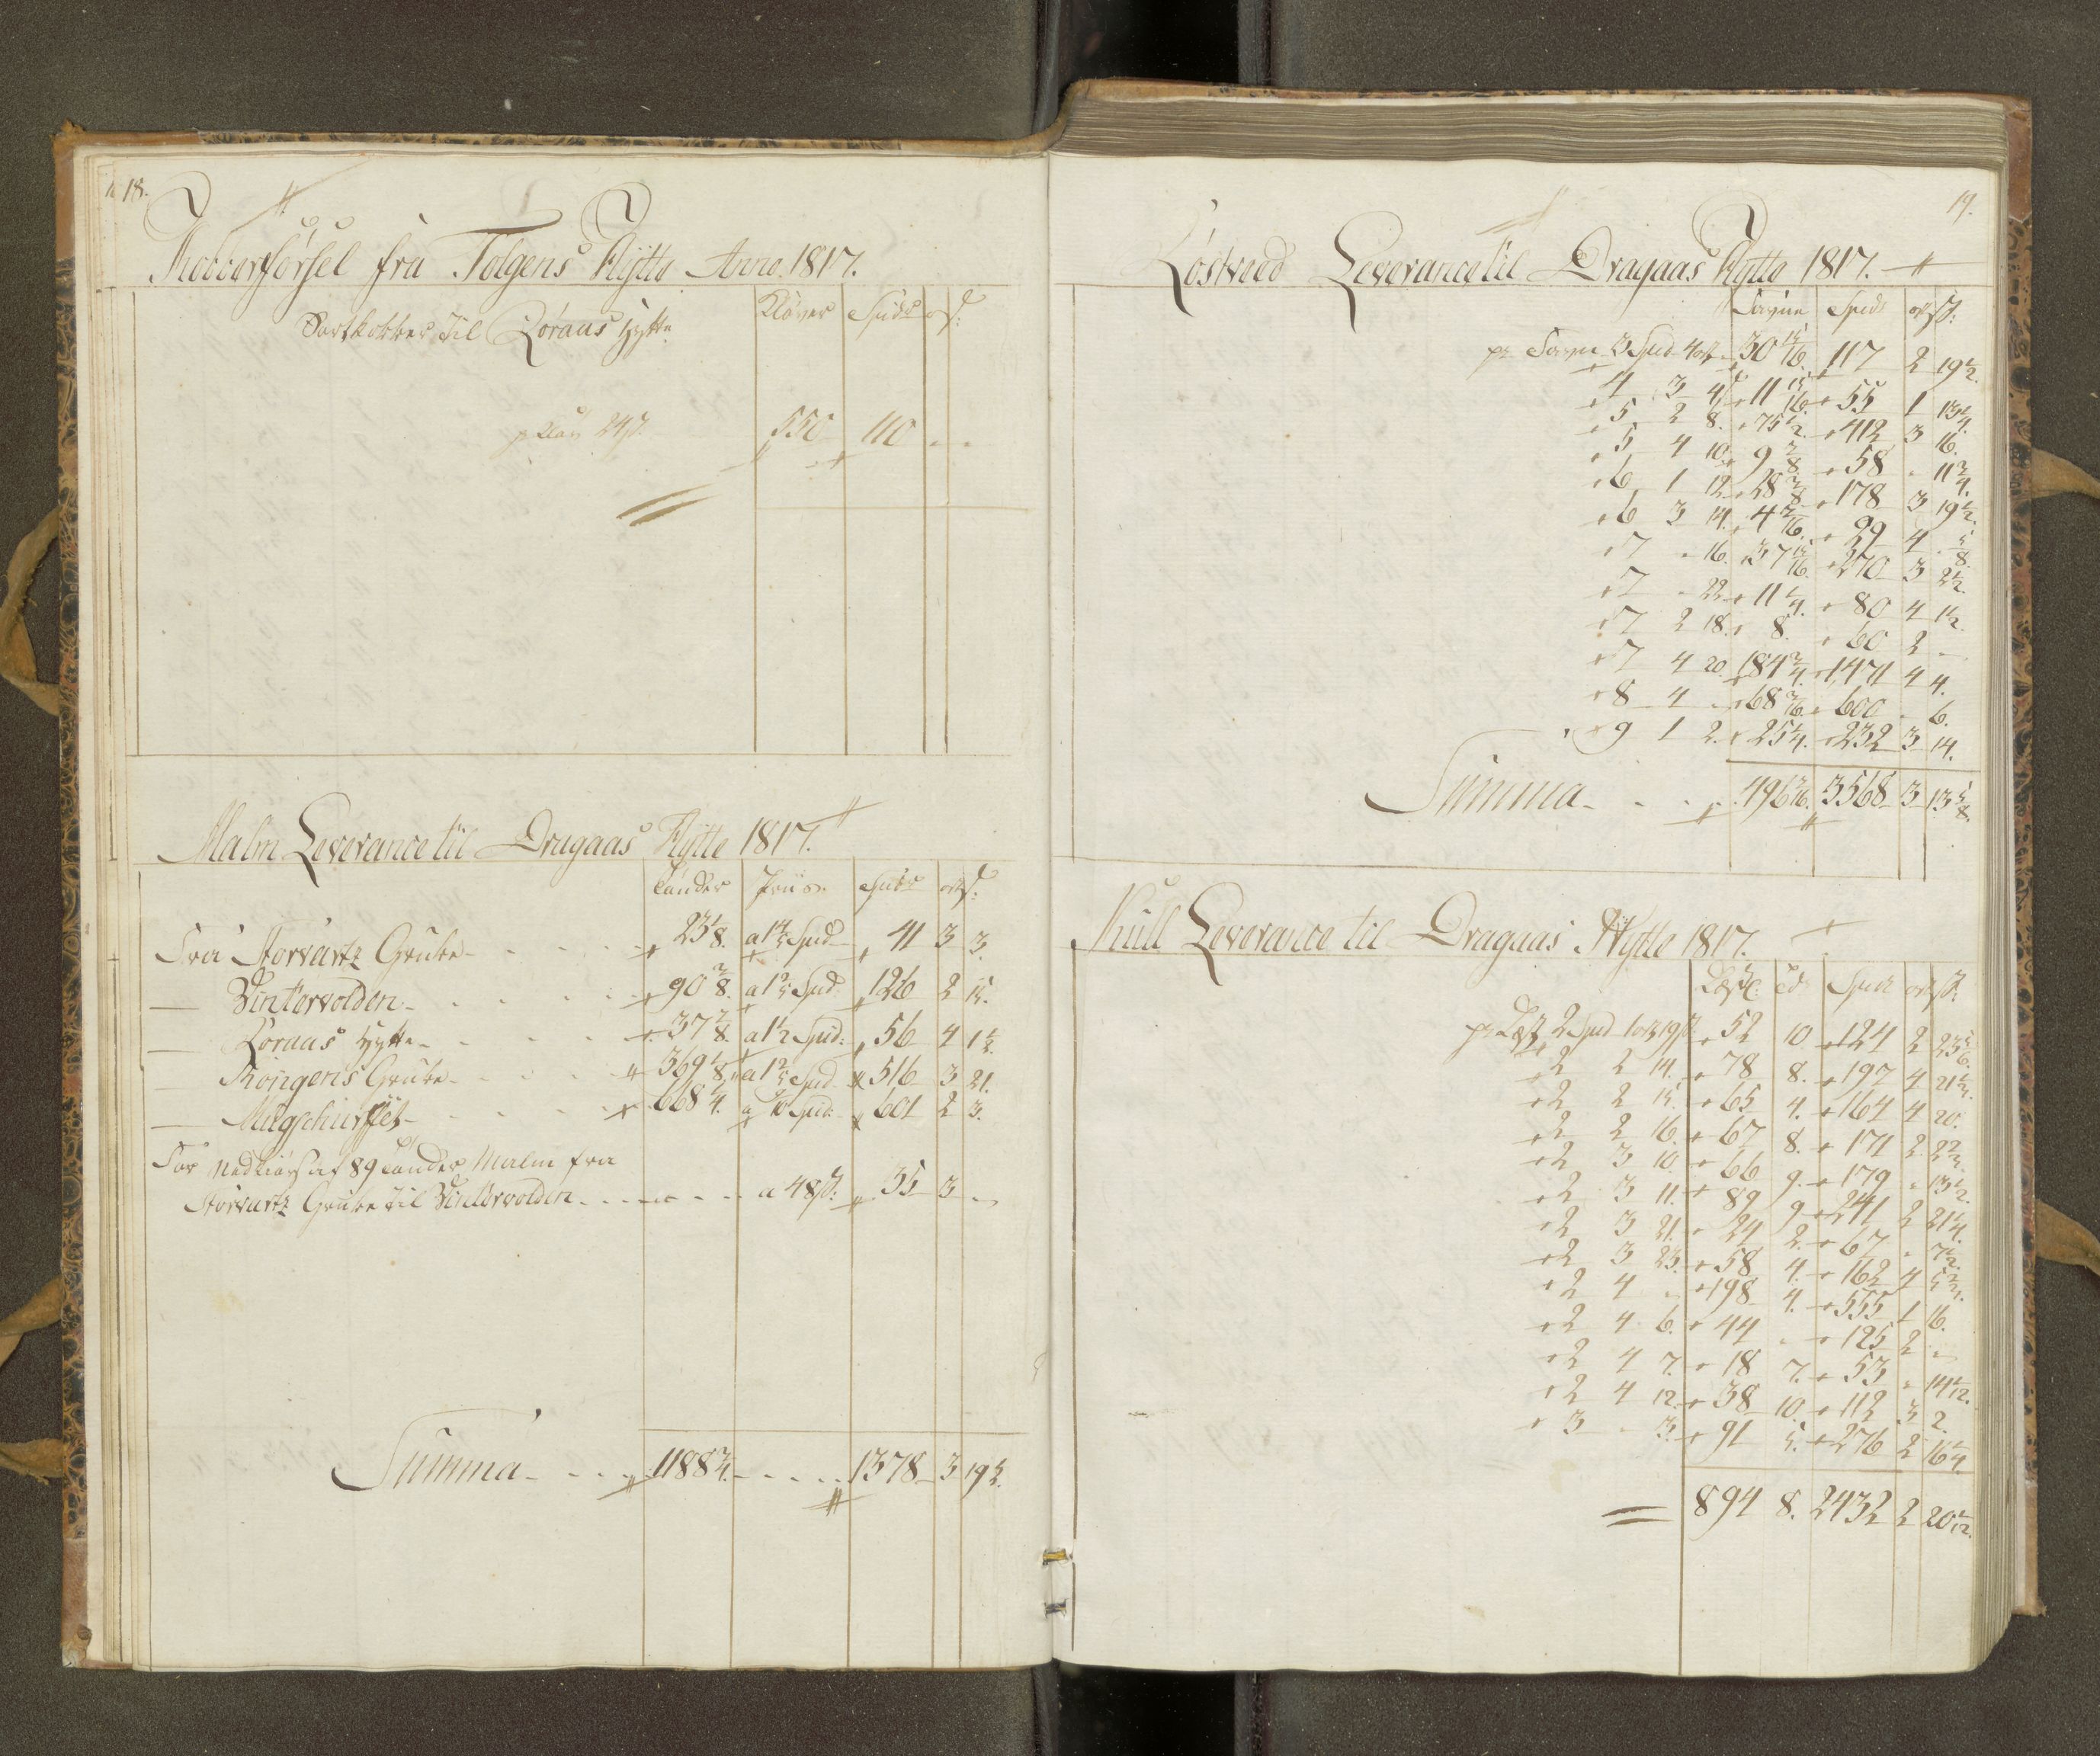 18.
Kobberförsel fra Tolgens Hÿtte Anno 1817.
Kløver Spd ort ß:
Sortkobber til Röraas Hytte
p Kløv 24 ß. 550 110 - -
Malm Leverance til Dragaas Hÿtte 1817.
Tønder Priis Spd ort ß:
Fra Storvartz Grube - 23 1/8. a 1 4/5 Spd 41 3 3.
— Vintervolden - 90 2/8. a 1 2/5 Spd 126 2 15.
— Röraas Hytte - 37 7/8. a 1 1/2 Spd: 56 4 1 1/2.
— Kongens Grube - 369 1/8. a 1 2/5 Spd 516 3 21.
— Mugg - 668 1/4. a 9/10 Spd: 601 2 3.
For Nedkiørs af 89 Tønder Malm fra
Storvartz Grube til Vintervolden - - - a 48 ß: 35 3 -
Summa - - - 1188 3/4. - - - 1378 3 19 1/2.
19.
Röstveed Leverance til Dragaas Hÿtte 1817.
Favne Spd ort ß:
pr Favn 3 Spd 4 ort - 30 15/16. 117 2 19 1/2.
4 3 4 11 15/16. 55 1 13 1/4.
5 2 8. 75 1/2. 412 3 16.
5 4 10. 9 7/8. 58 - 11 3/4.
6 1 12. 28 3/8. 178 3 19 1/2.
6 3 14. 4 7/16. 29 4 5/8.
7 - 16. 37 15/16. 270 3 2 1/2.
7 - 22. 11 1/4. 80 4 1 1/2.
7 2 18. 8. 60 2 -
7 4 20. 184 3/4. 1471 4 4.
8 4 - 68 3/16. 600 - 6.
9 1 2. 25 1/4. 232 3 14.
Summa - - - 496 7/16. 3568 3 13 5/8.
Kull Leverance til Dragaas Hÿtte 1817.
Læst: Td Spd ort ß:
pr Læst 2 Spd 1 ort 19 ß 52 10 124 2 23 5/6.
2 2 14. 78 8. 197 4 21 1/3.
2 2 15. 65 4. 164 4 20.
2 2 16. 67 8. 171 2 22 2/3.
2 3 10. 66 9. 179 - 13 1/2.
2 3 11. 89 9 241 2 21 1/4.
2 3 21. 24 2. 67 - 7 1/2.
2 3 23. 58 4. 162 4 5 2/3.
2 4 - 198 4. 555 1 16.
2 4 6. 44 - 125 2 -
2 4 7. 18 7. 53 - 14 1/12.
2 4 12. 38 10. 112 3 2.
3 - 3. 91 5. 276 2 16 1/4.
894 8. 2432 2 20 1/12.